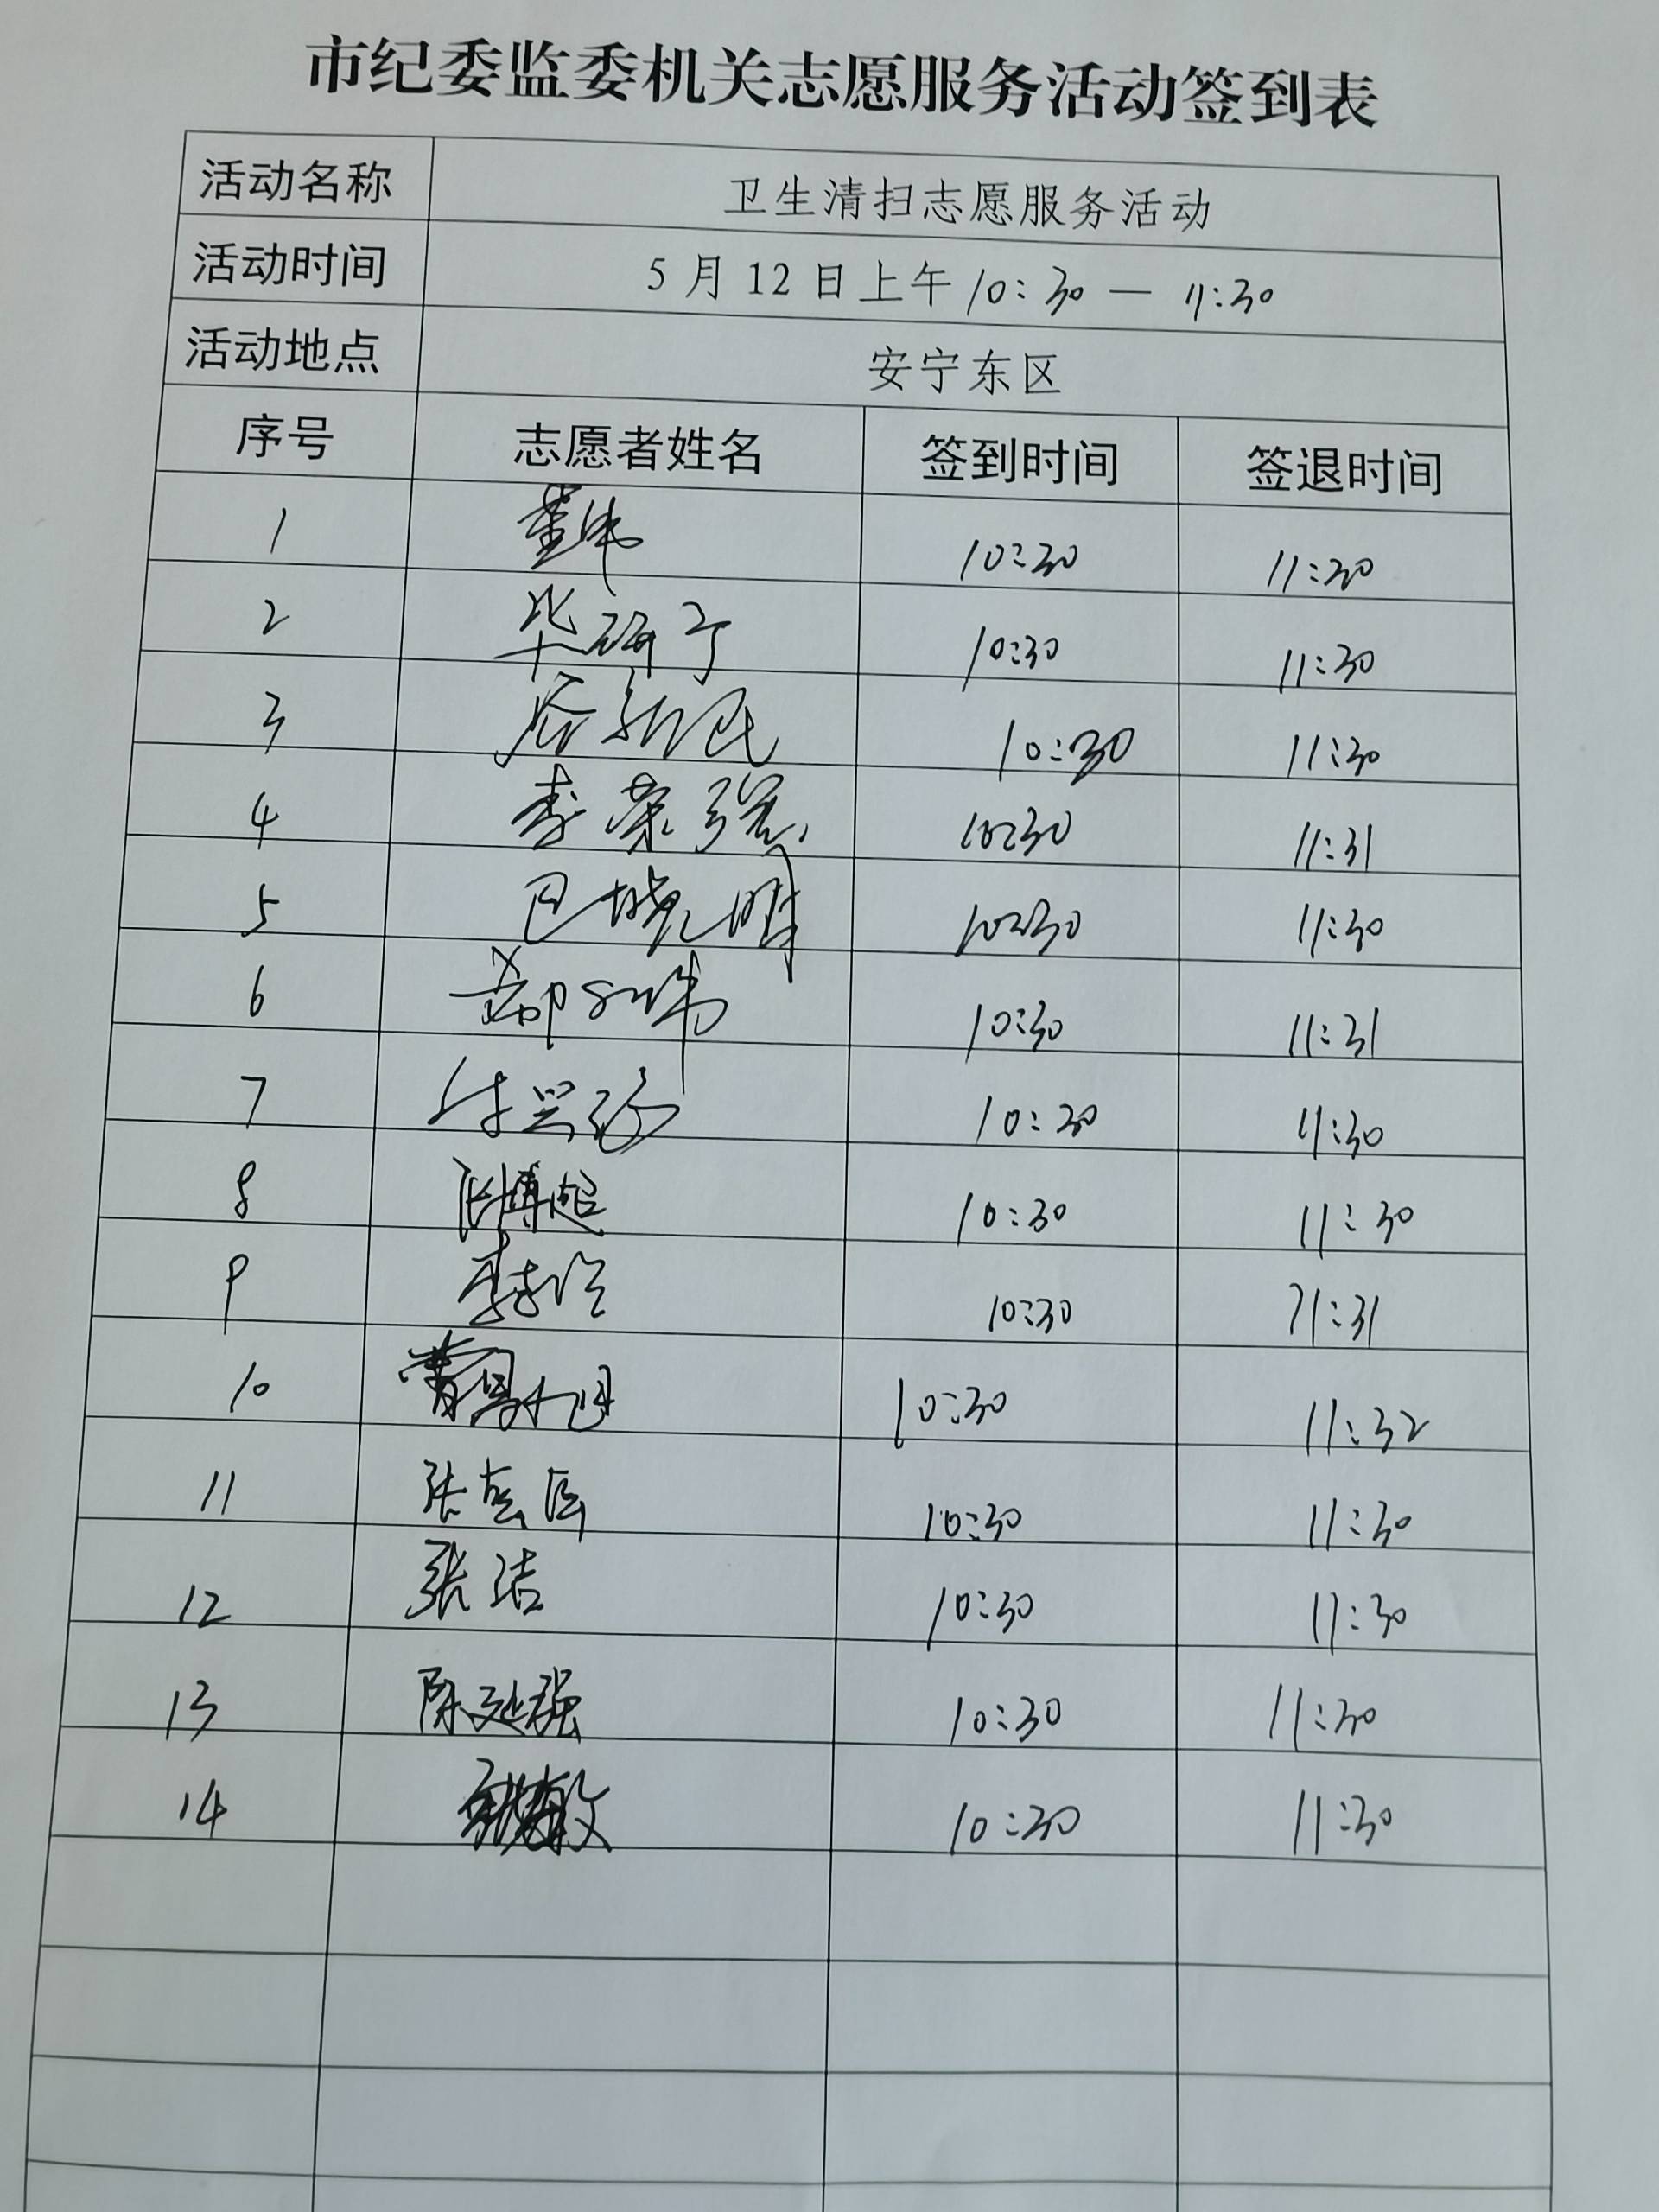 市纪委监委机关志愿服务活动签到表
活动名称 卫生清扫志愿服务活动
活动时间 5月12日上午10:30—11:30
活动地点 安宁东区
序号 志愿者姓名 签到时间 签退时间
1 董伟 10:30 11:30
2 毕研宁 10:30 11:30
3 10:30 11:30
4 李荣强 10:30 11:31
5 巴晓明 10:30 11:30
6 10:30 11:31
7 10:30 11:30
8 张博超 10:30 11:30
9 10:30 11:31
10 10:30 11:32
11 10:30 11:30
12 张洁 10:30 11:30
13 陈延强 10:30 11:30
14 10:30 11:30